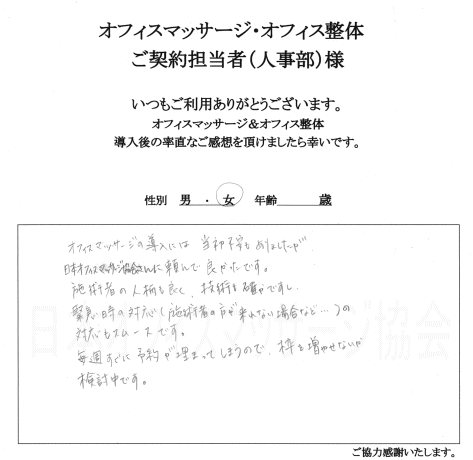 オフィスマッサージ・オフィス整体
ご契約担当者(人事部)様
いつもご利用ありがとうございます。
オフィスマッサージ&オフィス整体
導入後の率直なご感想を頂けましたら幸いです。
性別 男 ・ 女 年齢 歳
オフィスマッサージの導入には 当初不安もありましたが
日本オフィスマッサージ協会さんに頼んで良かったです。
施術者の人柄も良く、技術も確かですし、
緊急時の対応(施術者の方が来れない場合など…)の
対応もスムーズです。
毎週すぐに予約が埋まってしまうので、枠を増やせないか
検討中です。
日本オフィスマッサージ協会
ご協力感謝いたします。